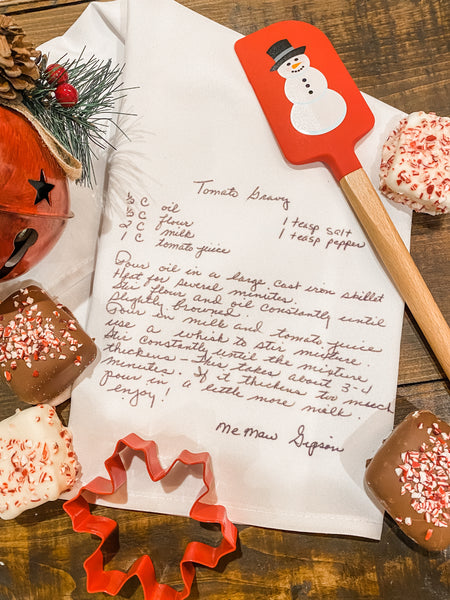 Tomato Gravy
½ C oil
½ C flour 1 teasp salt
2 C milk 1 teasp pepper
1 C tomato juice
Pour oil in a large cast iron skillet
Heat for severel minutes.
Stir flour and oil constantly until
slightly browned.
Pour in milk and tomato juice
use a whisk to stir mixture.
Stir constantly until the mixture
thickens - This takes about 3-4
minutes. If it thickens too much
pour in a little more milk.
enjoy!
MeMaw Gipson